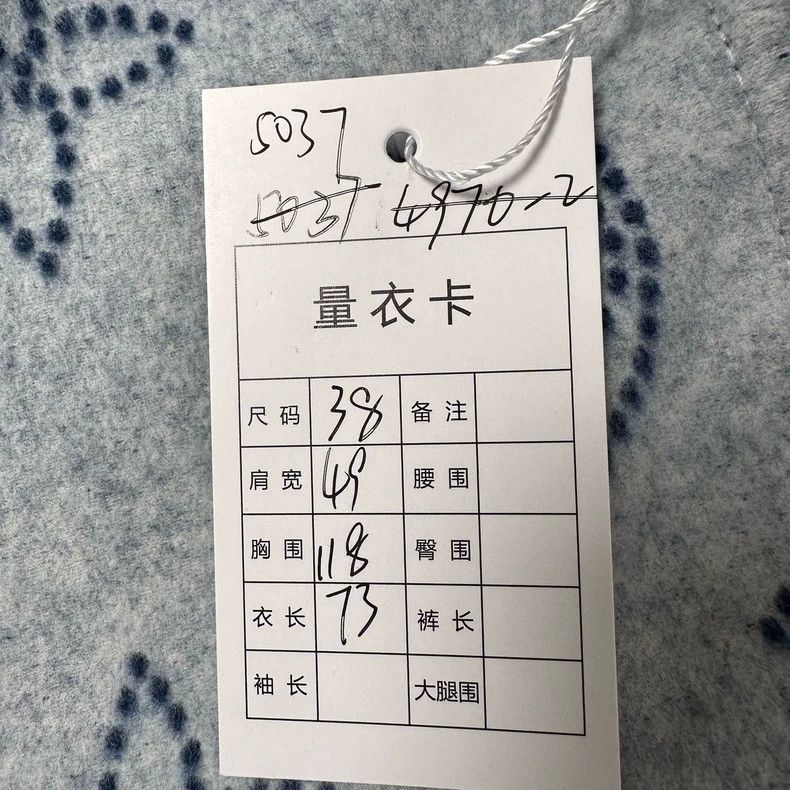 5037
5037 4976-2
量衣卡
尺码 38 备注
肩宽 49 腰围
胸围 118 臀围
衣长 73 裤长
袖长 大腿围